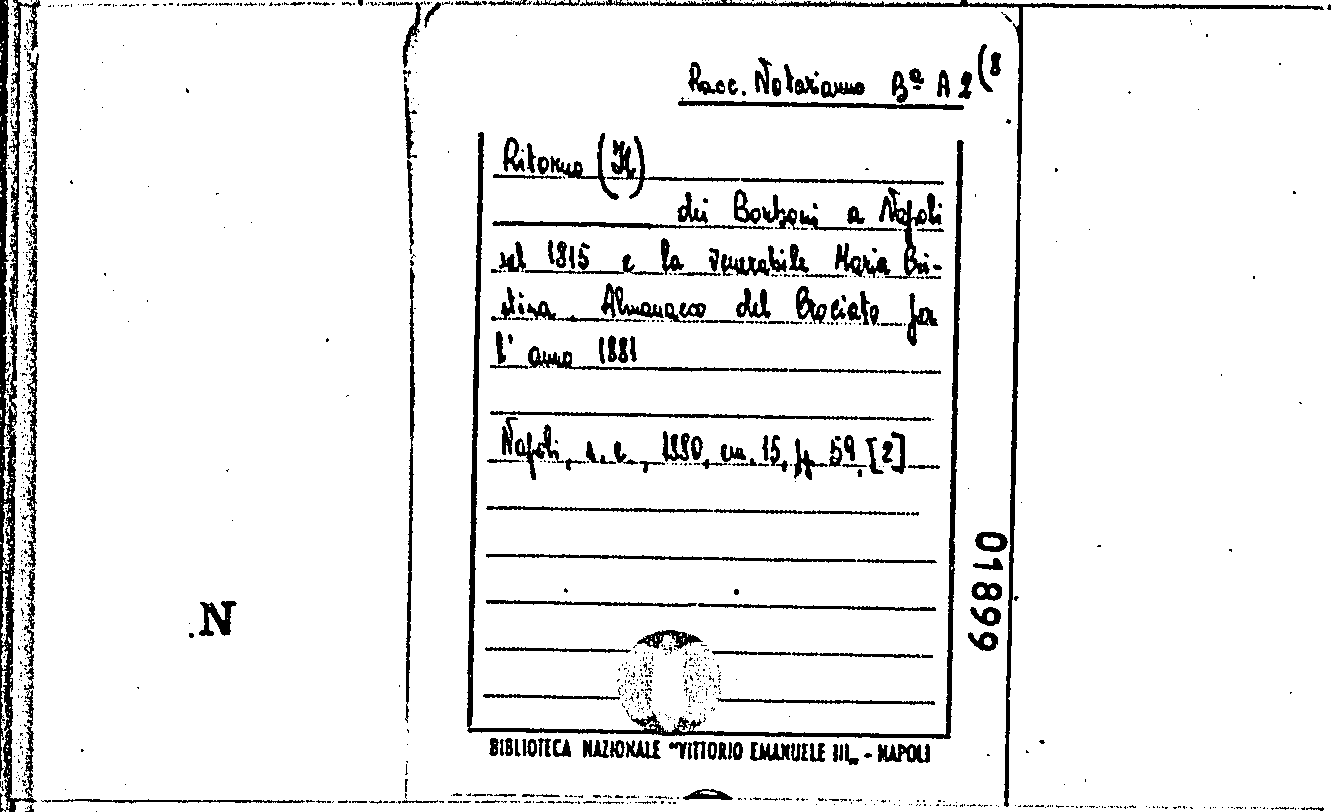 Racc. Notarianno Bª A 2 (8
Ritorno (Il)
dei Borboni a Napoli
nel 1815 e la venerabile Maria Cri-
stina. Almanacco del Crociato per
l' anno 1881
Napoli, s. e., 1880, cm. 15, pp. 59, [2]
01899
N
BIBLIOTECA NAZIONALE "VITTORIO EMANUELE III„ - NAPOLI